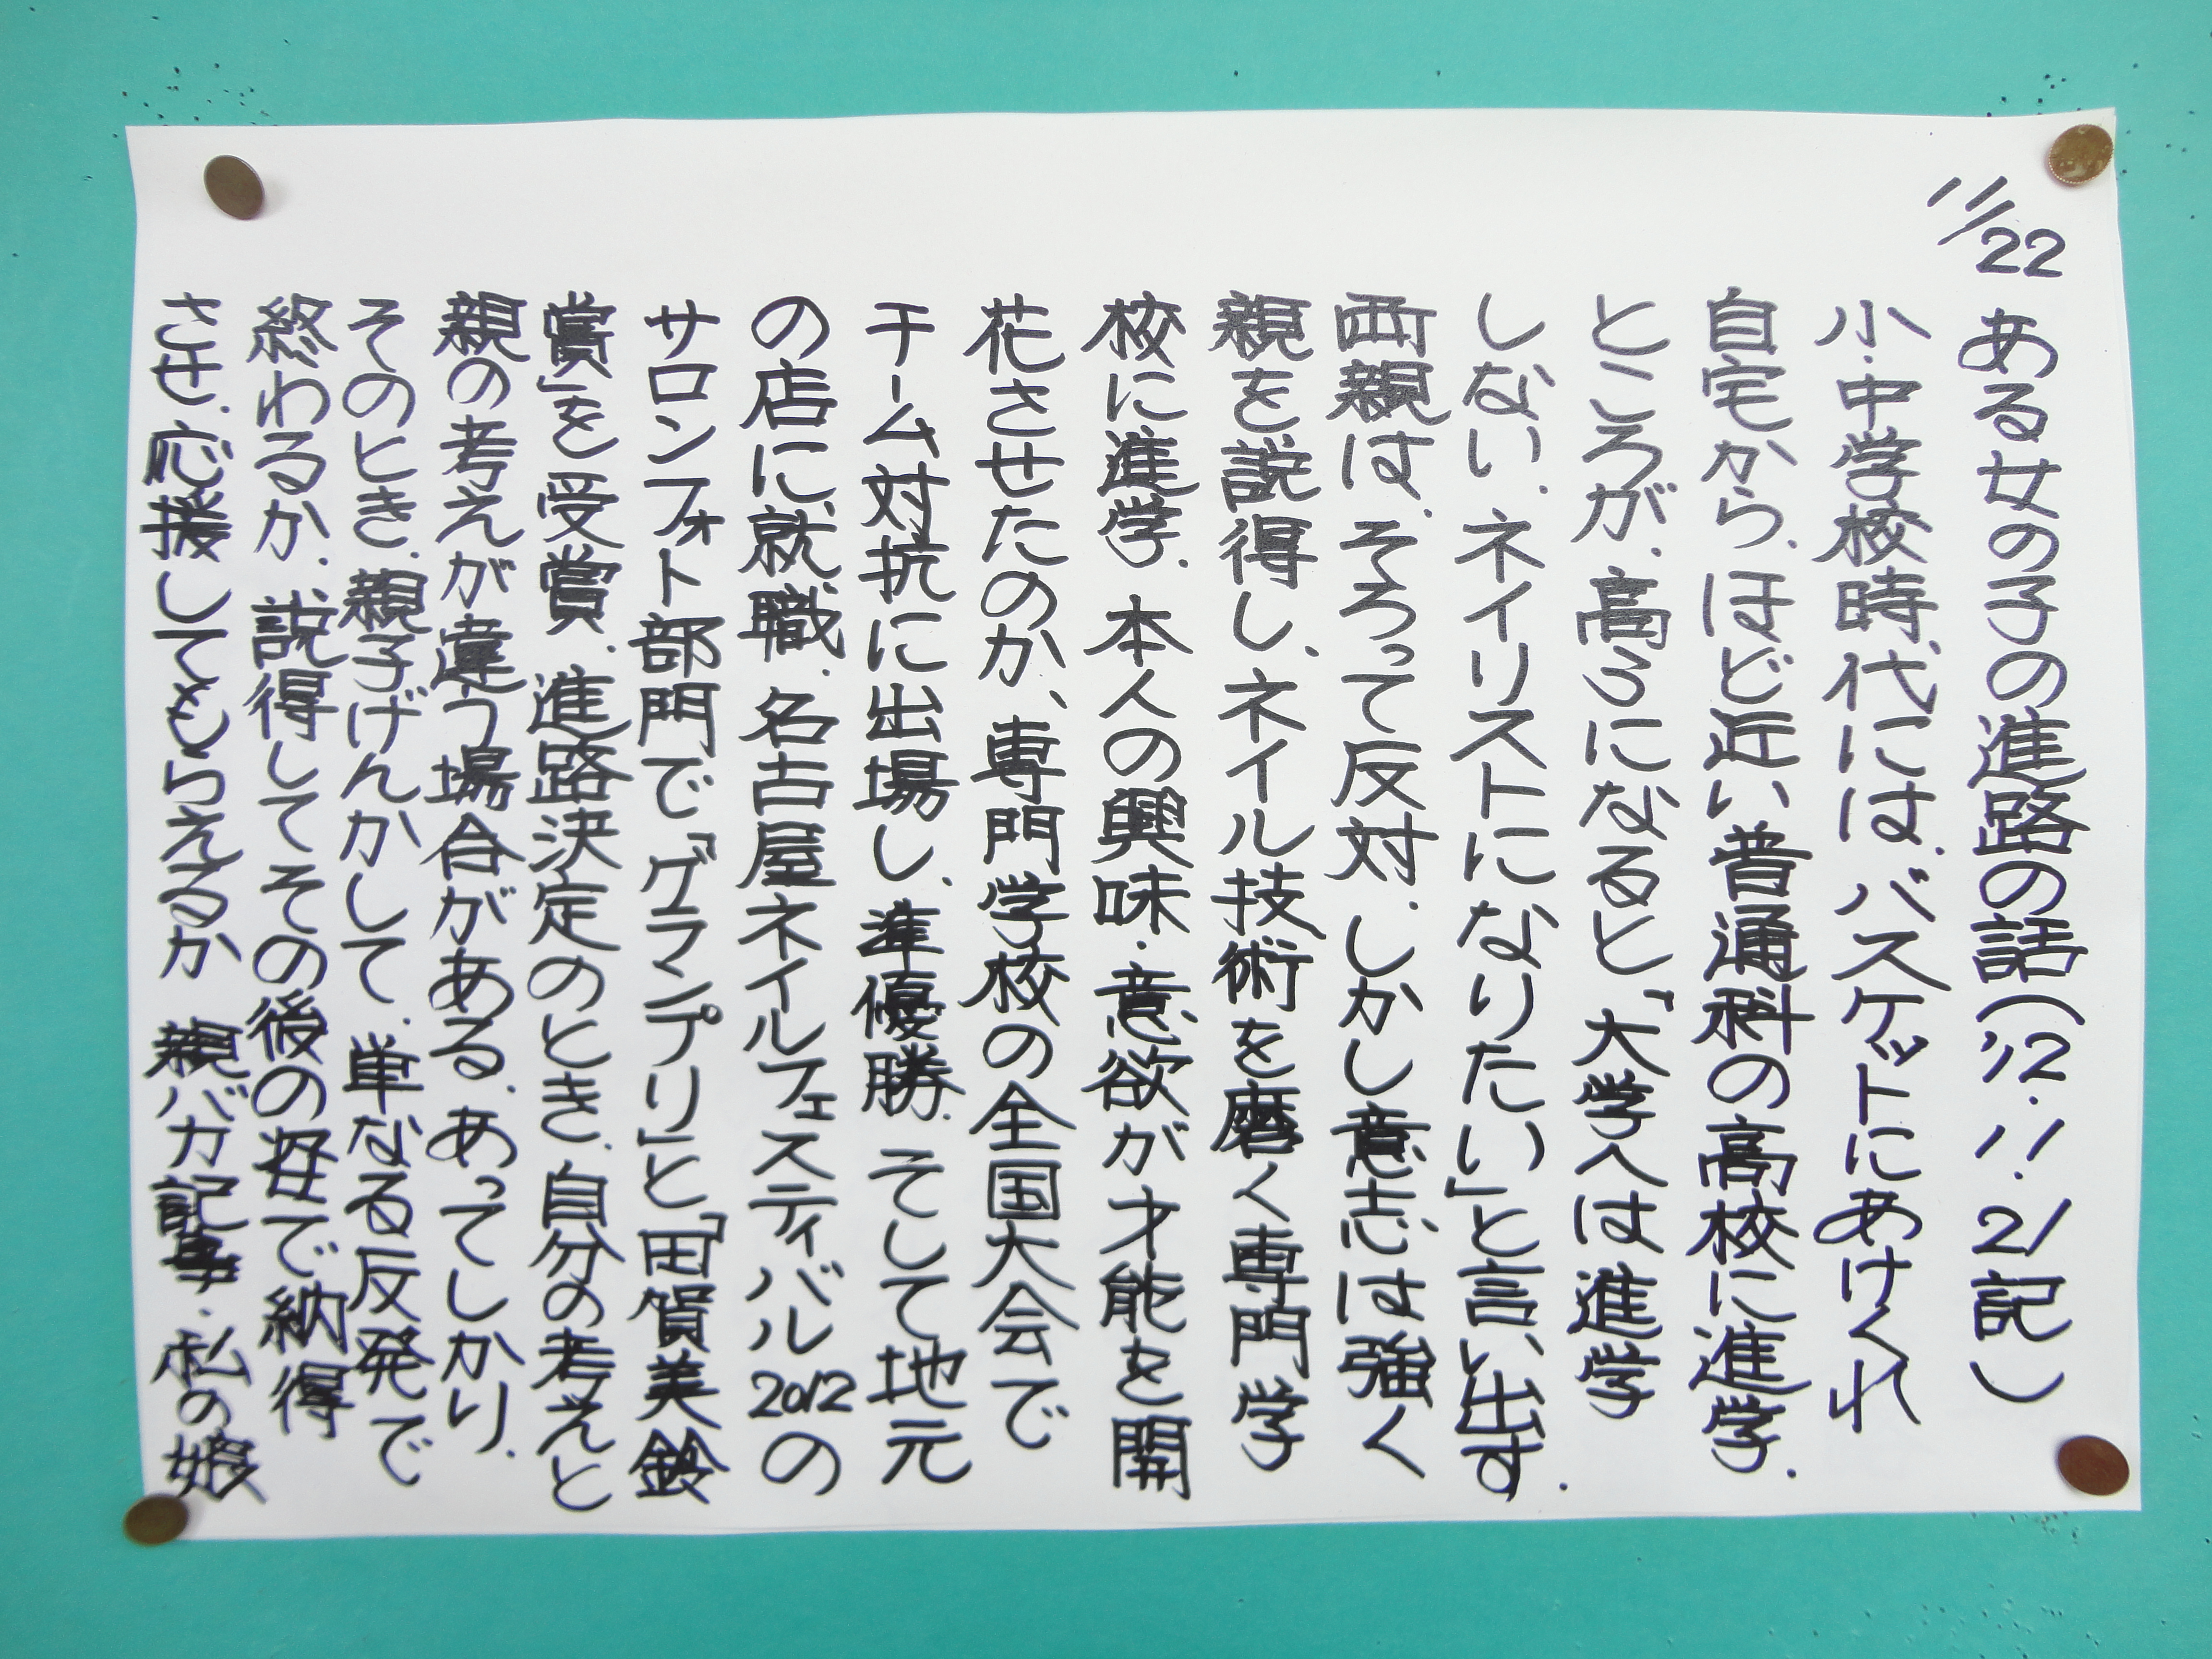 11/22
ある女の子の進路の話('12.11.21記)
小・中学校時代には、バスケットにあけくれ
自宅から、ほど近い普通科の高校に進学.
ところが、高3になると、「大学へは進学
しない、ネイリストになりたい」と言い出す.
両親は、そろって反対.しかし意志は強く
親を説得し、ネイル技術を磨く専門学
校に進学.本人の興味・意欲が才能を開
花させたのか、専門学校の全国大会で
チーム対抗に出場し、準優勝.そして地元
の店に就職.名古屋ネイルフェスティバル2012の
サロンフォト部門で「グランプリ」と「田賀美鈴
賞」を受賞.進路決定のとき、自分の考えと
親の考えが違う場合がある.あってしかり.
そのとき、親子げんかして、単なる反発で
終わるか、説得してその後の姿で納得
させ、応援してもらえるか 親バカ記事・私の娘